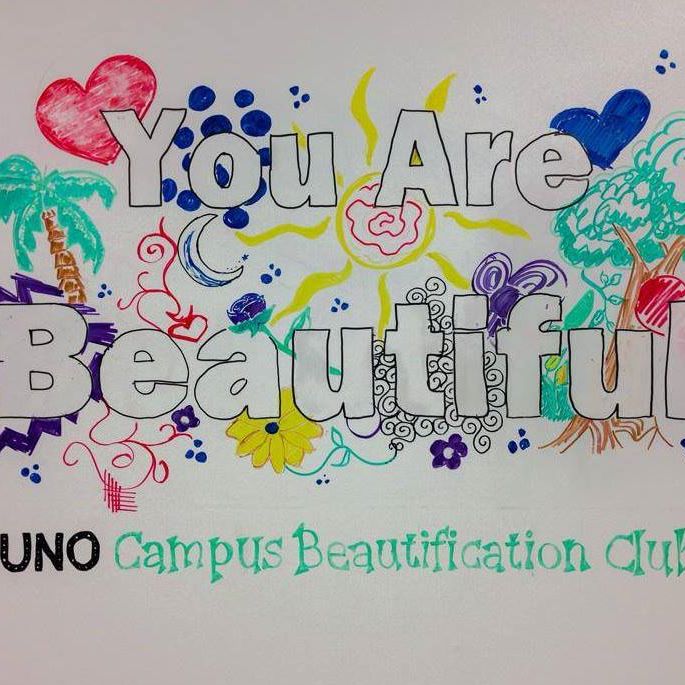 You Are
Beautiful
UNO Campus Beautification Club